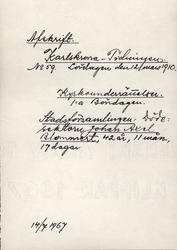 Afskrift.
Karlskrona-Tidningen
No 59. Lördagen den 12/mars 1910.
Kyrkounderrättelser.
1:a Söndagen.
Stadsförsamlingen: Döde:
Johan Axel
Blommert, 42 år, 11 mån.,
17 dagar
14/4 1967